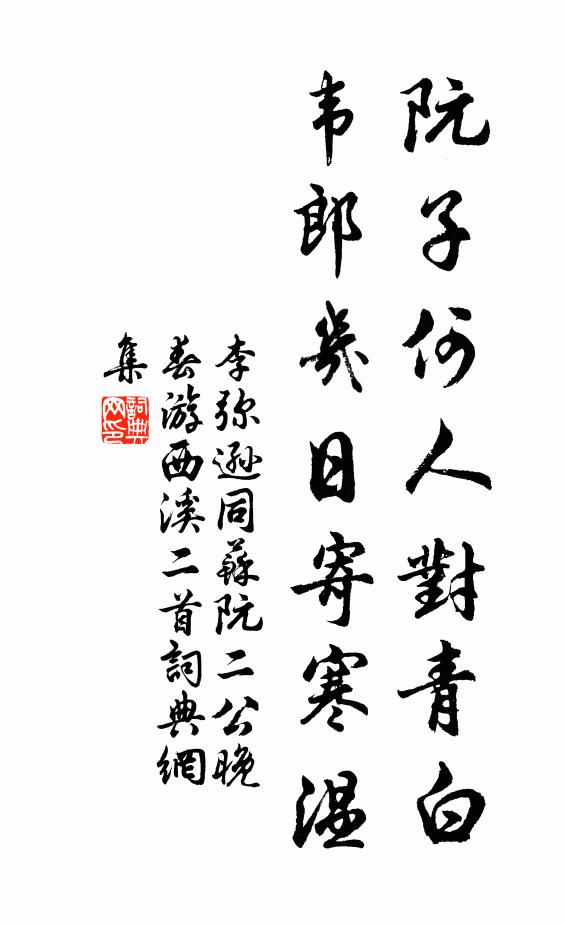 阮子何人對青白
韦郎幾日寄寒溫
李弥遜同蘇阮二公晚
春游西溪二首詞典網
集
詞典
网印